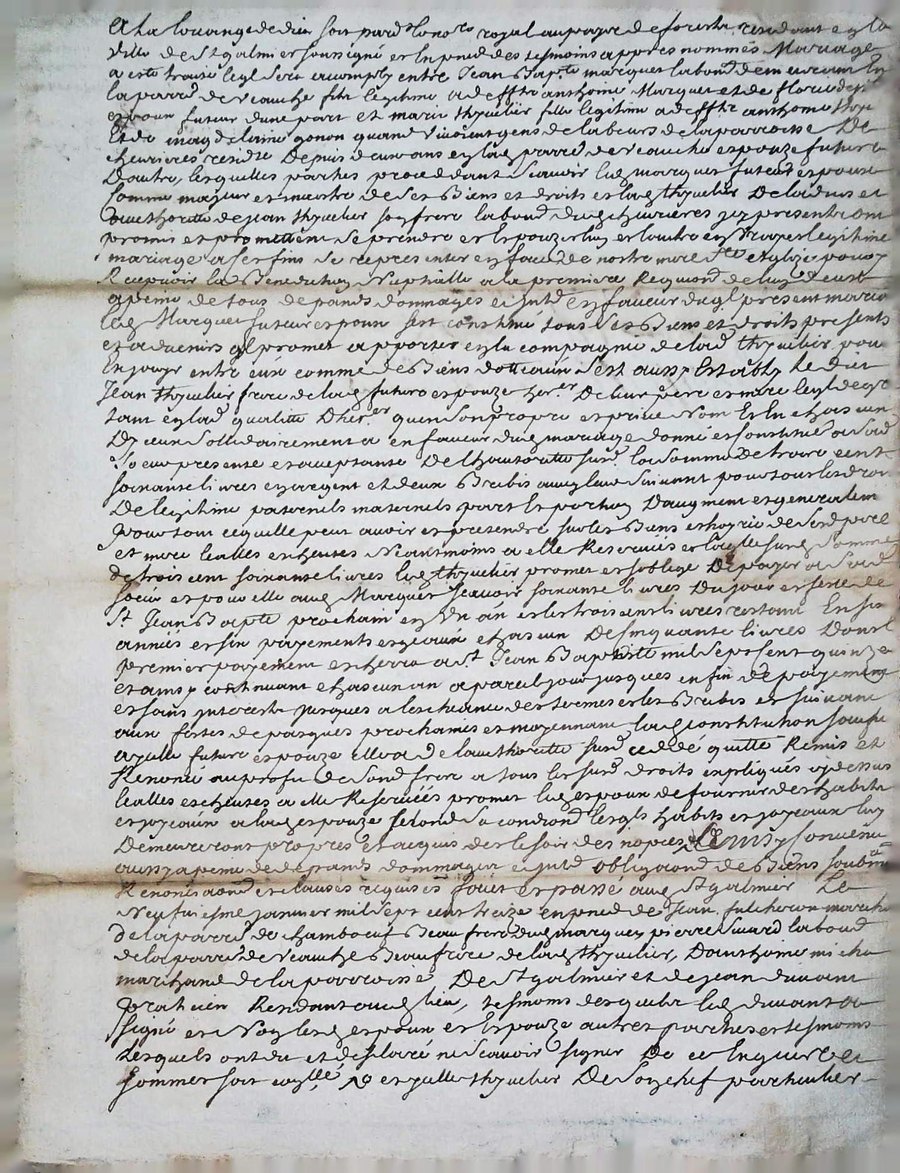 A la louange de dieu soit pard^t le no^re royal au pays de forestz residant en la
ville de S^t galmier soussigné et en pnce des tesmoins appres nommés Mariage
a esté traité leql sera accomply entre Jean Bap^te marquet laboud^r demeurant En
la parr^e de veauche fils légitime a defft anthoine Marquet et de fleurie
espoux futeur d'une part et marie thyvelier fille legitime a defft anthoine thy
Et de magdelaine gonon quand vivoient gens de labeurs de la parroisse De
chevrieres residte Depuis deux ans en lad parr^e de veauche espouze future
D'autre, lesquelles parties procedant Scavoir led marquet futeur espoux
comme majeur et maistre de ses Biens et droits et lad thyvelier De ladvis et
authoritte de jean thyvelier son frere laboud^r dud chevrieres icy present ont
promis et promettent se prendre et Espouzer lun et lautre en vray et legitime
mariage a ces fins se representer en face de nostre mere S^te Esglize pour y
Recepvoir la Benediction Nuptialle a la premiere Requon^d de lun deux
a peine de tous depands dommages et intd En faveur duql present mariage
led Marquet futeur espoux sest constitué tous ses Biens et droits presents
et advenirs ql promet apporter en la compagnie de lad thyvelier pour
En jouyr entre eux comme de Biens dotteaux S'est aussy Estably le dict
Jean thyvelier frere de lad future espouze her^er De leur pere et mere leql de gre
tant en lad qualitte D'her^er quen son propre et prive Nom Et lu chascun
D'y ceux sollidairement a en faveur dud mariage donné et constitué a sad
Soeur presente et acceptante De lhautoritte susd la somme De trois cent
soixante livres en argent et deux Brebis avec leur suivant pour tous les droits
De legitime paternels maternels part et portion D'augment et generalem^t
pour tout ce qu'elle peut avoir et pretendre sur les Biens et hoyrie de sesd pere
et mere lealles escheutes Neantmoins a elle Reservées et laqlle susd Somme
de trois cent soixante livres led thyvelier promet et soblige De payer a sad
soeur et pour elle aud Marquet Scavoir soixante livres Du jour et feste de
S^t Jean Bap^te prochain en Un an et les trois cens livres restant En six
années et six payements egeaux chascun De cinquante livres Dont le
premier payement escherra a S^t Jean Baptiste mil sept cent quinze
et ainsy continuant chascun an a pareil jour jusques en fin de payement
et sans interests jusques a lescheance des termes et les Brebis et suivant
aux festes de pasques prochaines et moyennant lad constitution
a ycelle future espouze elle a de lauthoritte susd cedé quitté Remis et
Renoncé au profit de sond frere a tous les susd droits expliqués cy dessus
lealles escheutes a elle Reservées promet led espoux de fournir des habits
et joyaux a lad espouze selon sa condon lesqls habits et joyaux luy
Demeureront propres et acquis des le soir des nopces Ainsy Convenu
aussy a peine de depands dommages et intd obligaon de Biens soubmi
Renonciaon et clauses requises fait et passé aud S^t galmier Le
Neufviesme janvier mil sept cent treize en pnce de Jean fulcheron march^d
de la parr^e de chambœuf Beau frere dud marquet pierre Suard laboud^r
de la parr^e de veauche Beau frere de lad thyvelier, D'anthoine micho
marchand de la parroisse De S^t galmier et de jean duvant
praticien Residant aud lieu, tesmoins desquels led duvant a
signé et Non lesd espoux et Espouze autres parties et tesmoins
Lesquels ont dit et desclaré ne scavoir signer De ce Enquis et
Sommes soit conllé et ycelle thyvelier De son chef particulier